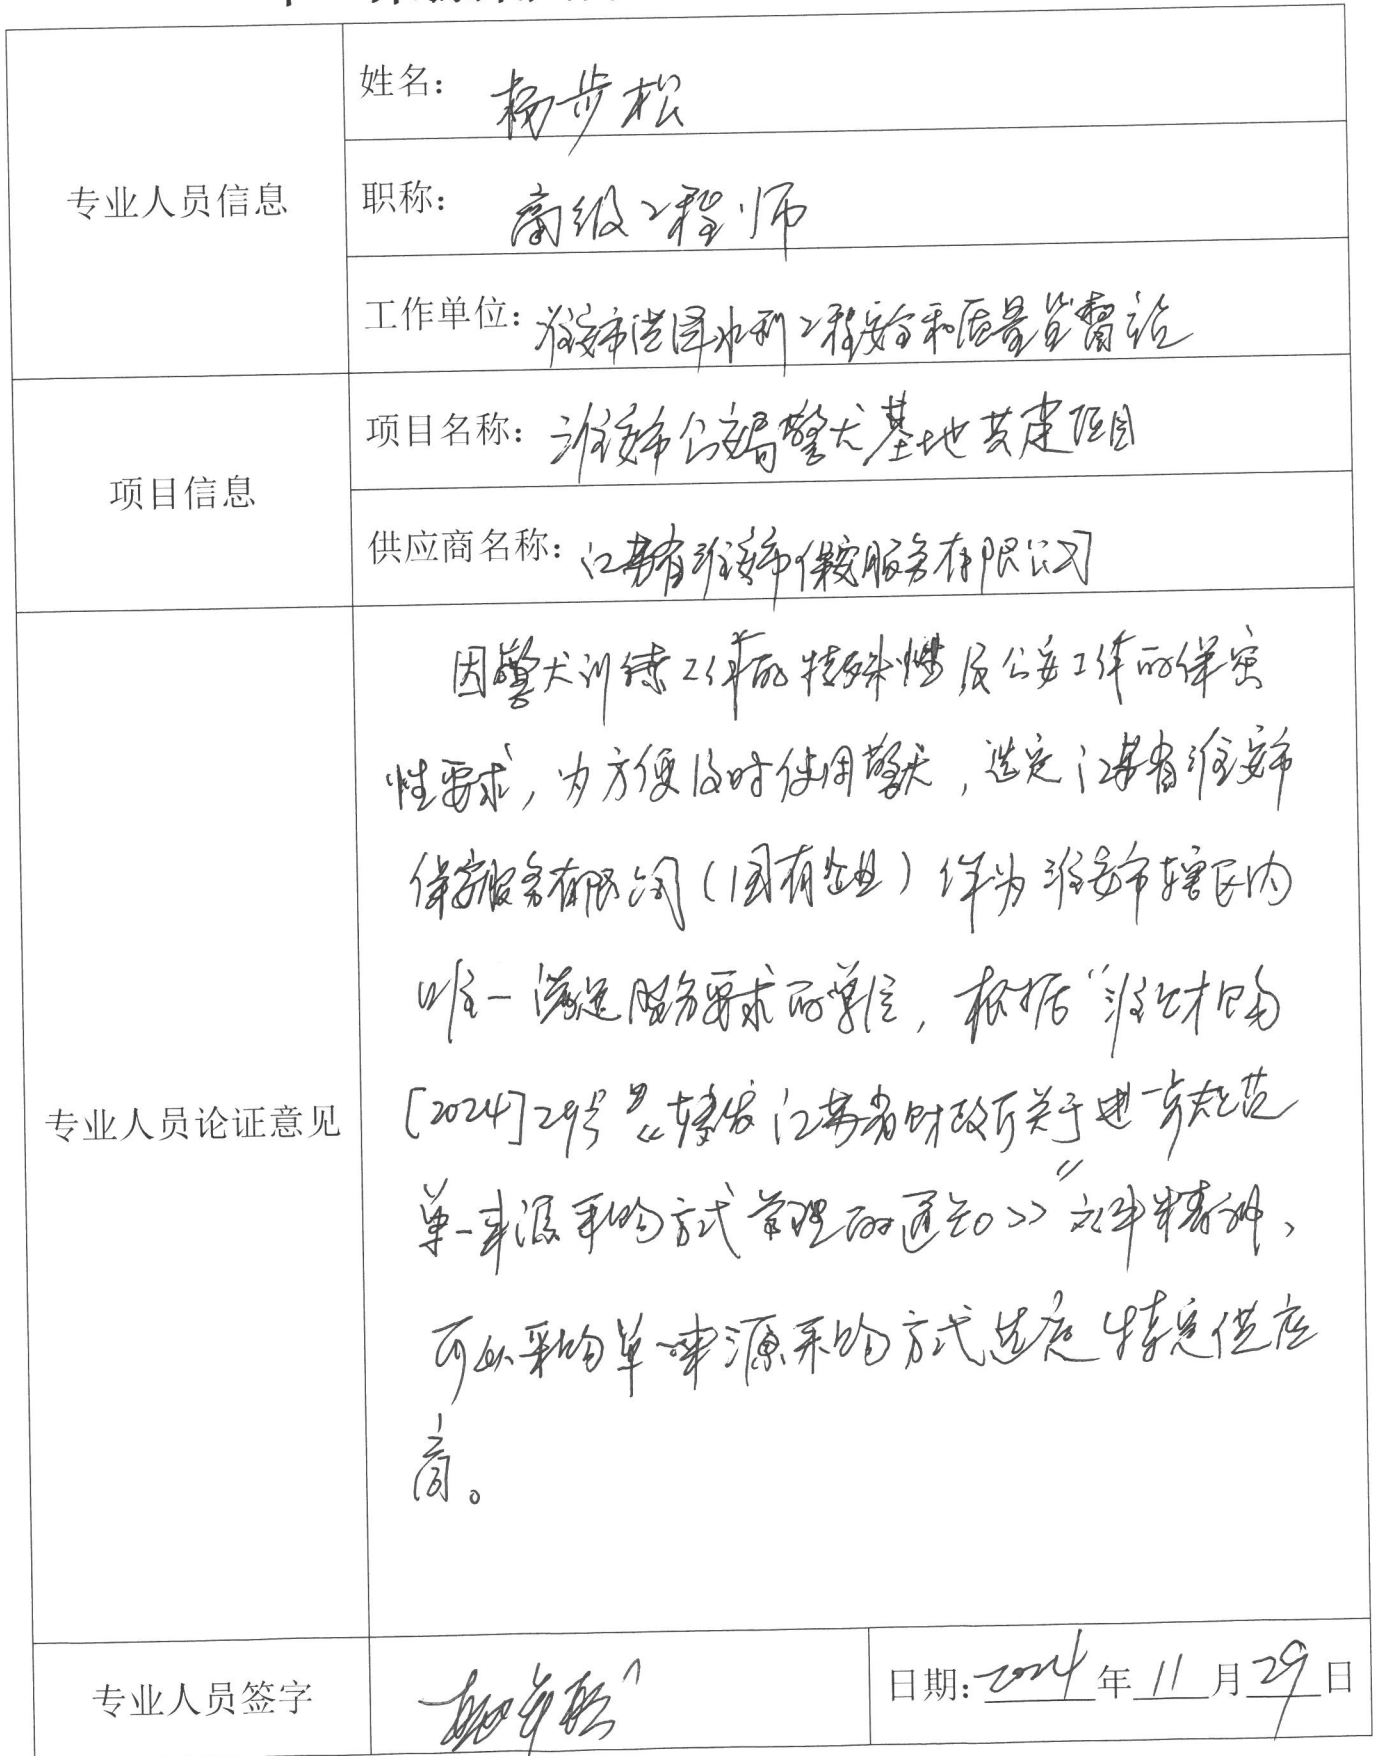 姓名：杨步松
专业人员信息
职称：高级工程师
工作单位：淮安市洪泽水利工程安全和质量监督站
项目信息
项目名称：淮安市公安局警犬基地共建项目
供应商名称：江苏省淮安市保安服务有限公司
专业人员论证意见
因警犬训练工作的特殊性及公安工作的保密
性要求，为方便及时使用警犬，选定江苏省淮安市
保安服务有限公司（国有企业）作为淮安市辖区内
唯一满足服务要求的单位，根据“淮财购
[2024]29号《转发江苏省财政厅关于进一步规范
单一来源采购方式管理的通知》”文件精神，
可以采购单一来源采购方式选定特定供应
商。
专业人员签字
杨步松
日期：2024年11月29日